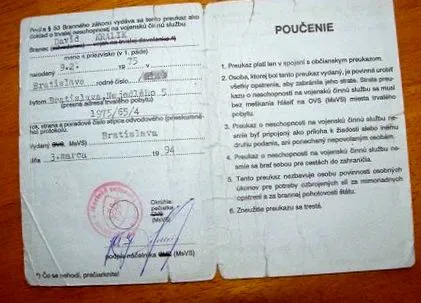 Podľa § 53 Branného zákona vydáva sa tento preukaz ako
doklad o trvalej neschopnosti na vojenskú činnú službu.
David KRALIK
Branec
meno a priezvisko (v 1. páde)
9.2. 75
narodený 19
Bratislava
rodné číslo
bytom Bratislava, Nejedlého 5
(presná adresa trvalého
pobytu)
1975/65/4
rok, strana a poradové číslo
ného protokolu.
Bratislava
Vydaný OVS (MsVS)
dňa 3.marca 19 94
Okrúhla
pečiatka
OVS
(MsVS)
podpis náčelníka OVS (MsVS)
*) Čo sa nehodí, prečiarknite!
POUČENIE
1. Preukaz platí len v spojení s občianskym preukazom.
2. Osoba, ktorej bol tento preukaz vydaný, je povinná urobiť
všetky opatrenia, aby zabránila jeho strate. Stratu preu-
kazu o neschopnosti na vojenskú činnú službu sa musí
bez meškania hlásiť na OVS (MsVS) miesta trvalého
pobytu.
3. Preukaz o neschopnosti na vojenskú činnú službu ne-
smie byť pripojený ako príloha k žiadosti alebo inému
druhu podania, ani ponechaný nepovolaným osobám.
4. Preukaz o neschopnosti na vojenskú činnú službu ne-
smie sa brať sebou pri cestách do zahraničia.
5. Tento preukaz nezbavuje osobu povinnosti osobných
úkonov pre potreby ozbrojených síl za mimoriadnych
opatrení a za brannej pohotovosti štátu.
6. Zneužitie preukazu sa trestá.